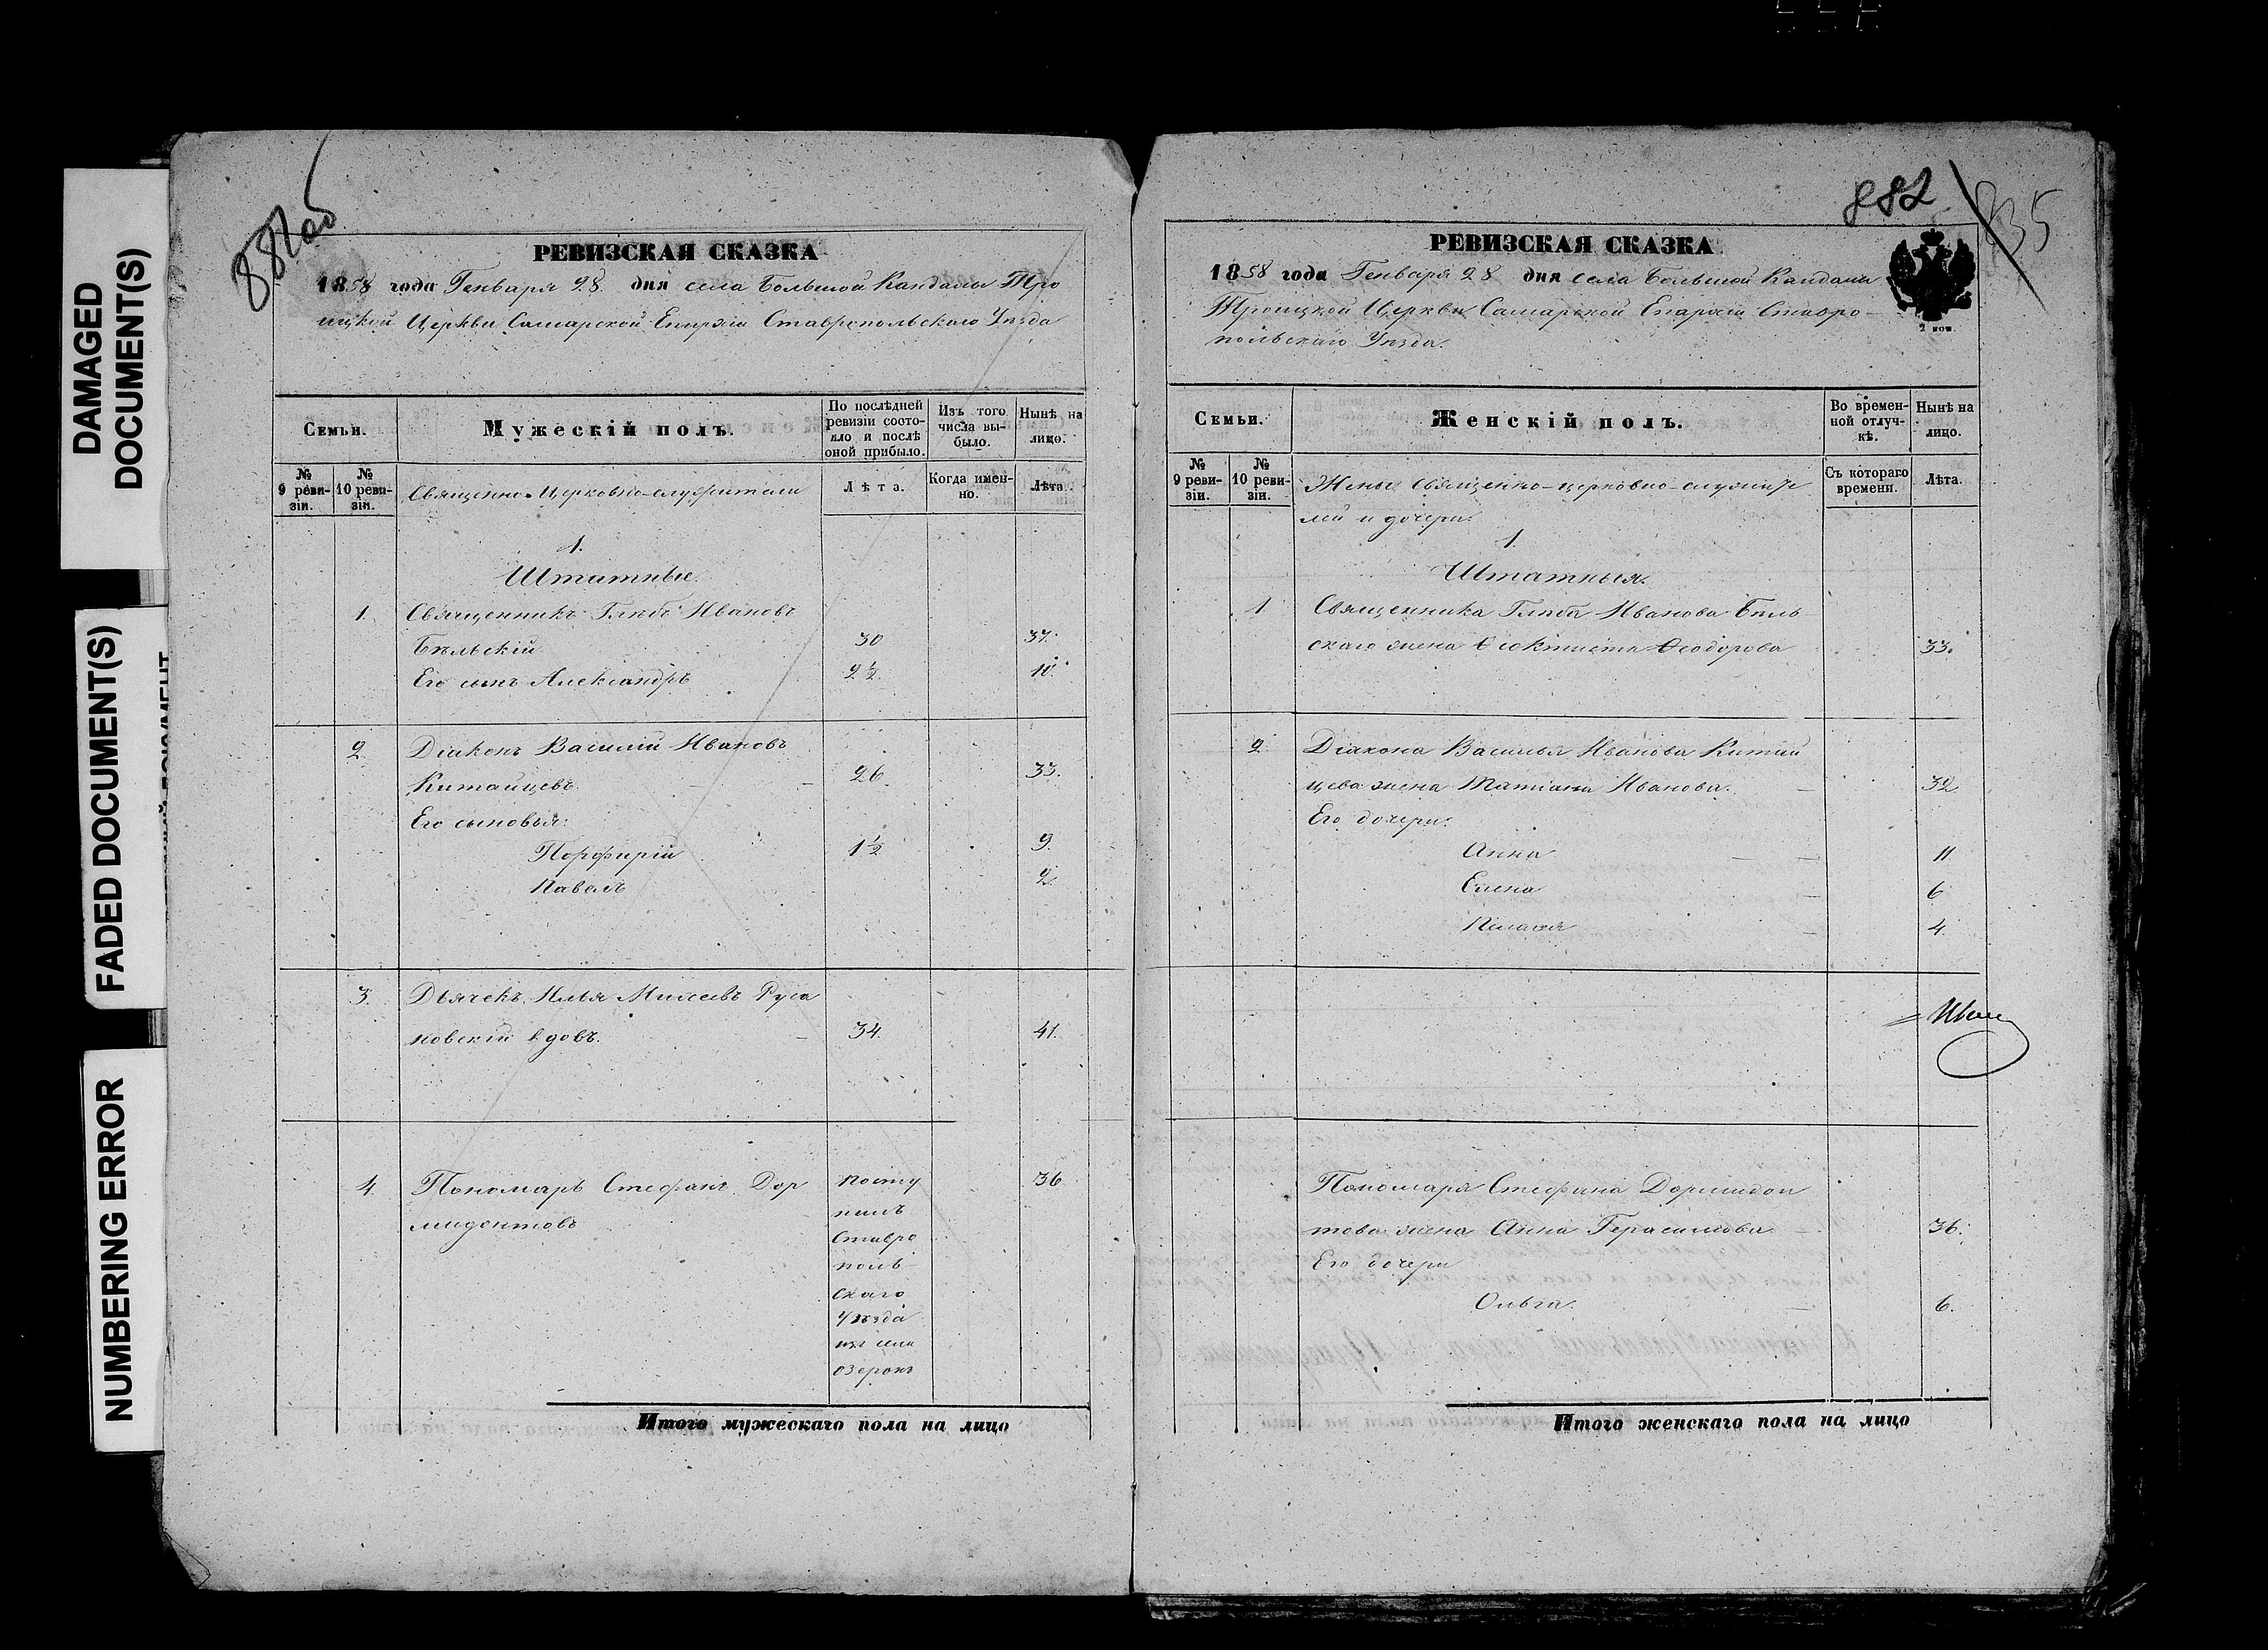 DAMAGED
DOCUMENT(S)
FADED DOCUMENT(S)
NUMBERING ERROR
882об
РЕВИЗСКАЯ СКАЗКА
1858 года Генваря 28 дня села Большой Кандалы Тро
ицкой Церкви Самарской Епархіи Ставропольскаго Уѣзда
Семьи.
Мужескій полъ.
По послѣдней ревизіи состояло и послѣ оной прибыло.
Изъ того числа выбыло.
Нынѣ на лицо.
№ 9 ревизіи.
№ 10 ревизіи.
Священно-Церковно-служители
Лѣта.
Когда именно.
Лѣта.
1.
Штатные.
1. Священникъ Глѣбъ Ивановъ
Бѣльскій 30 37.
Его сынъ Александръ 2½ 10.
2. Діаконъ Василій Ивановъ
Китайцевъ 26 33.
Его сыновья:
Порфирій 1½ 9.
Павелъ 2.
3. Дьячекъ Илья Михеевъ Руса
новскій вдовъ. 34. 41.
4. Пономарь Стефанъ Дор посту 36
мидонтовъ пилъ
Ставро
поль
скаго
уѣзда
изъ села
Озерокъ
Итого мужескаго пола на лицо
882
835
РЕВИЗСКАЯ СКАЗКА
1858 года Генваря 28 дня села Большой Кандалы
Троицкой Церкви Самарской Епархіи Ставро-
польскаго Уѣзда.
2 коп.
Семьи.
Женскій полъ.
Во временной отлучкѣ.
Нынѣ на лицо.
№ 9 ревизіи.
№ 10 ревизіи.
Жены священно-церковно-служите
лей и дочери.
Съ котораго времени.
Лѣта.
1.
Штатныя.
1 Священника Глѣба Иванова Бѣль
скаго жена Ѳеоктиста Ѳеодорова 33.
2 Діакона Василья Иванова Китай
цева жена Татіана Иванова. 32
Его дочери:
Анна 11
Елена 6
Пелагія 4.
Пономаря Стефана Дормидон
това жена Анна Герасимова 36.
Его дочери
Ольга. 6.
Итого женскаго пола на лицо